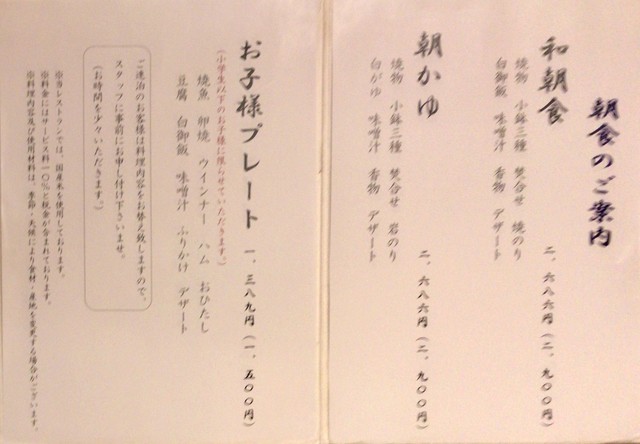 朝食のご案内
和朝食 二、六八六円（二、九〇〇円）
焼物 小鉢三種 焚合せ 焼のり
白御飯 味噌汁 香物 デザート
朝かゆ 二、六八六円（二、九〇〇円）
焼物 小鉢三種 焚合せ 岩のり
白がゆ 味噌汁 香物 デザート
お子様プレート 一、三八九円（一、五〇〇円）
（小学生以下のお子様に限らせていただきます。）
焼魚 卵焼 ウインナー ハム おひたし
豆腐 白御飯 味噌汁 ふりかけ デザート
ご連泊のお客様は料理内容をお替え致しますので、
スタッフに事前にお申し付け下さいませ。
（お時間を少々いただきます。）
※当レストランでは、国産米を使用しております。
※料金にはサービス料一〇％と税金が含まれております。
※料理内容及び使用材料は、季節・天候により食材・産地を変更する場合がございます。